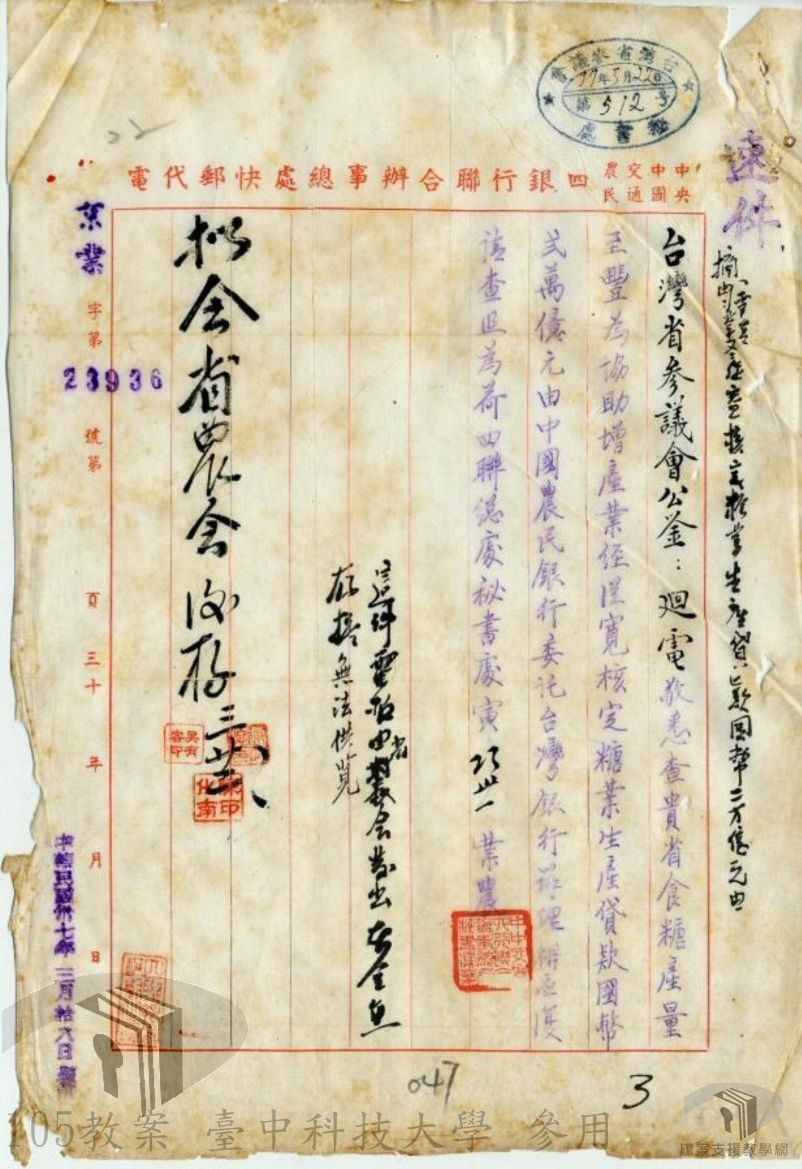 台灣省參議會
37年5月22日
第512号
秘書處
速件
中央
中國
交通
農民
四銀行聯合辦事總處快郵代電
京業字第23936號第 頁三十 年 月 日
中華民國卅七年三月拾八日
摘由
核定糖業生產貸款國幣二万億元由
台灣省参議會公鉴：廻電敬悉查貴省食糖產量
至豐為協助增產業經從寬核定糖業生產貸款國幣
弍萬億元由中國農民銀行委託台灣銀行辦理相應復
請查照為荷四聯總處秘書處寅 業農
電
存接無法供覽
拟会省農会後存
吳有容印
化南
047
3
105教案 臺中科技大學 參用
檔案支援教學網